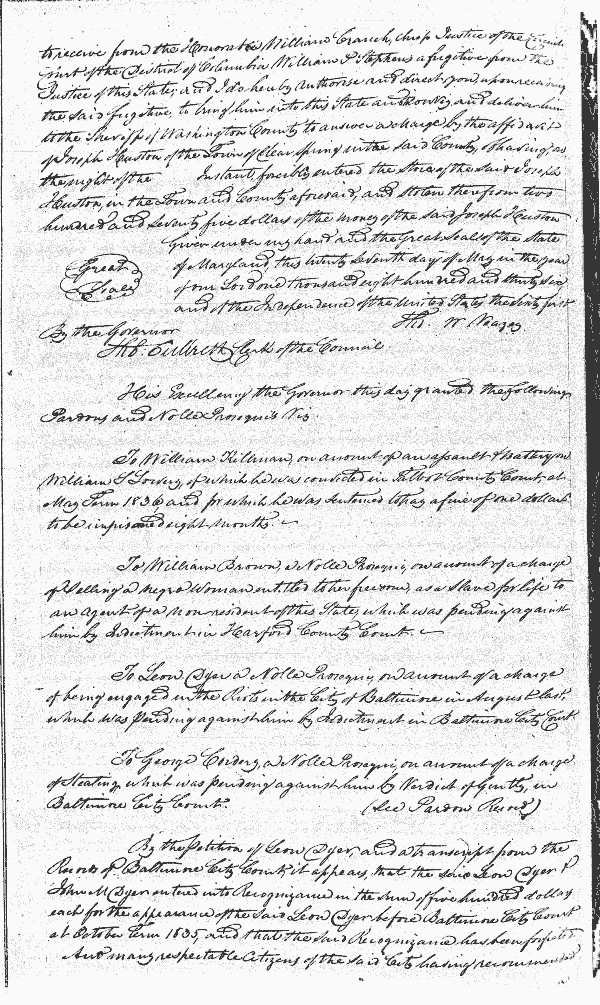 to receive from the Honorable William Cranch, chief Justice of the Circuit
Court of the District of Columbia William P Stephens a fugitive from the
Justice of this State; and I do hereby authorise and direct you, upon receiving
the said fugitive, to bring him into this State and County, and deliver him
to the Sheriff of Washington County to answer a charge by the affidavit
of Joseph Huston of the Town of Clearspring in the said County, of having, on
the night of the Instant, forcibly entered the Store of the said Joseph
Huston, in the Town and County aforesaid, and stolen therefrom two
hundred and seventy five dollars of the money of the said Joseph Huston
Given under my hand and the Great Seal of the State
of Maryland, this twenty seventh day of May in the year
of our Lord one thousand eight hundred and thirty six
and of the Independence of the United States the sixty first
Great
Seal
Tho. W. Veazey
By the Governor
Th. Culbreth Clerk of the Council
His Excellency the Governor this day granted the following
Pardons and Nolle Prosequis Viz
To William Killman, on account of an assault & battery on
William S Lowery, of which he was convicted in Talbot County Court at
May Term 1836 and for which he was sentenced to pay a fine of one dollar &
to be imprisoned eight months.
To William Brown, a Nolle Prosequi, on account of a charge
of Selling a negro Woman entitled to her freedom, as a Slave for life to
an agent of a non resident of this State, which was pending against
him by Indictment in Harford County Court.
To Leon Dyer a Nolle Prosequi, on account of a charge
of being engaged in the Riots in the City of Baltimore in August last,
which was pending against him by Indictment in Baltimore City Court
To George Cordery, a Nolle Prosequi, on account of a charge
of Stealing, which was pending against him by Verdict of Guilty, in
Baltimore City Court. (See Pardon Record)
By the Petition of Leon Dyer, and a transcript from the
Records of Baltimore City Court it appears, that the said Leon Dyer &
John M Dyer entered into Recognizance in the sum of five hundred dollars
each for the appearance of the said Leon Dyer before Baltimore City Court
at October Term 1835, and that the said Recognizance has been forfeited
And many respectable Citizens of the said City having recommended